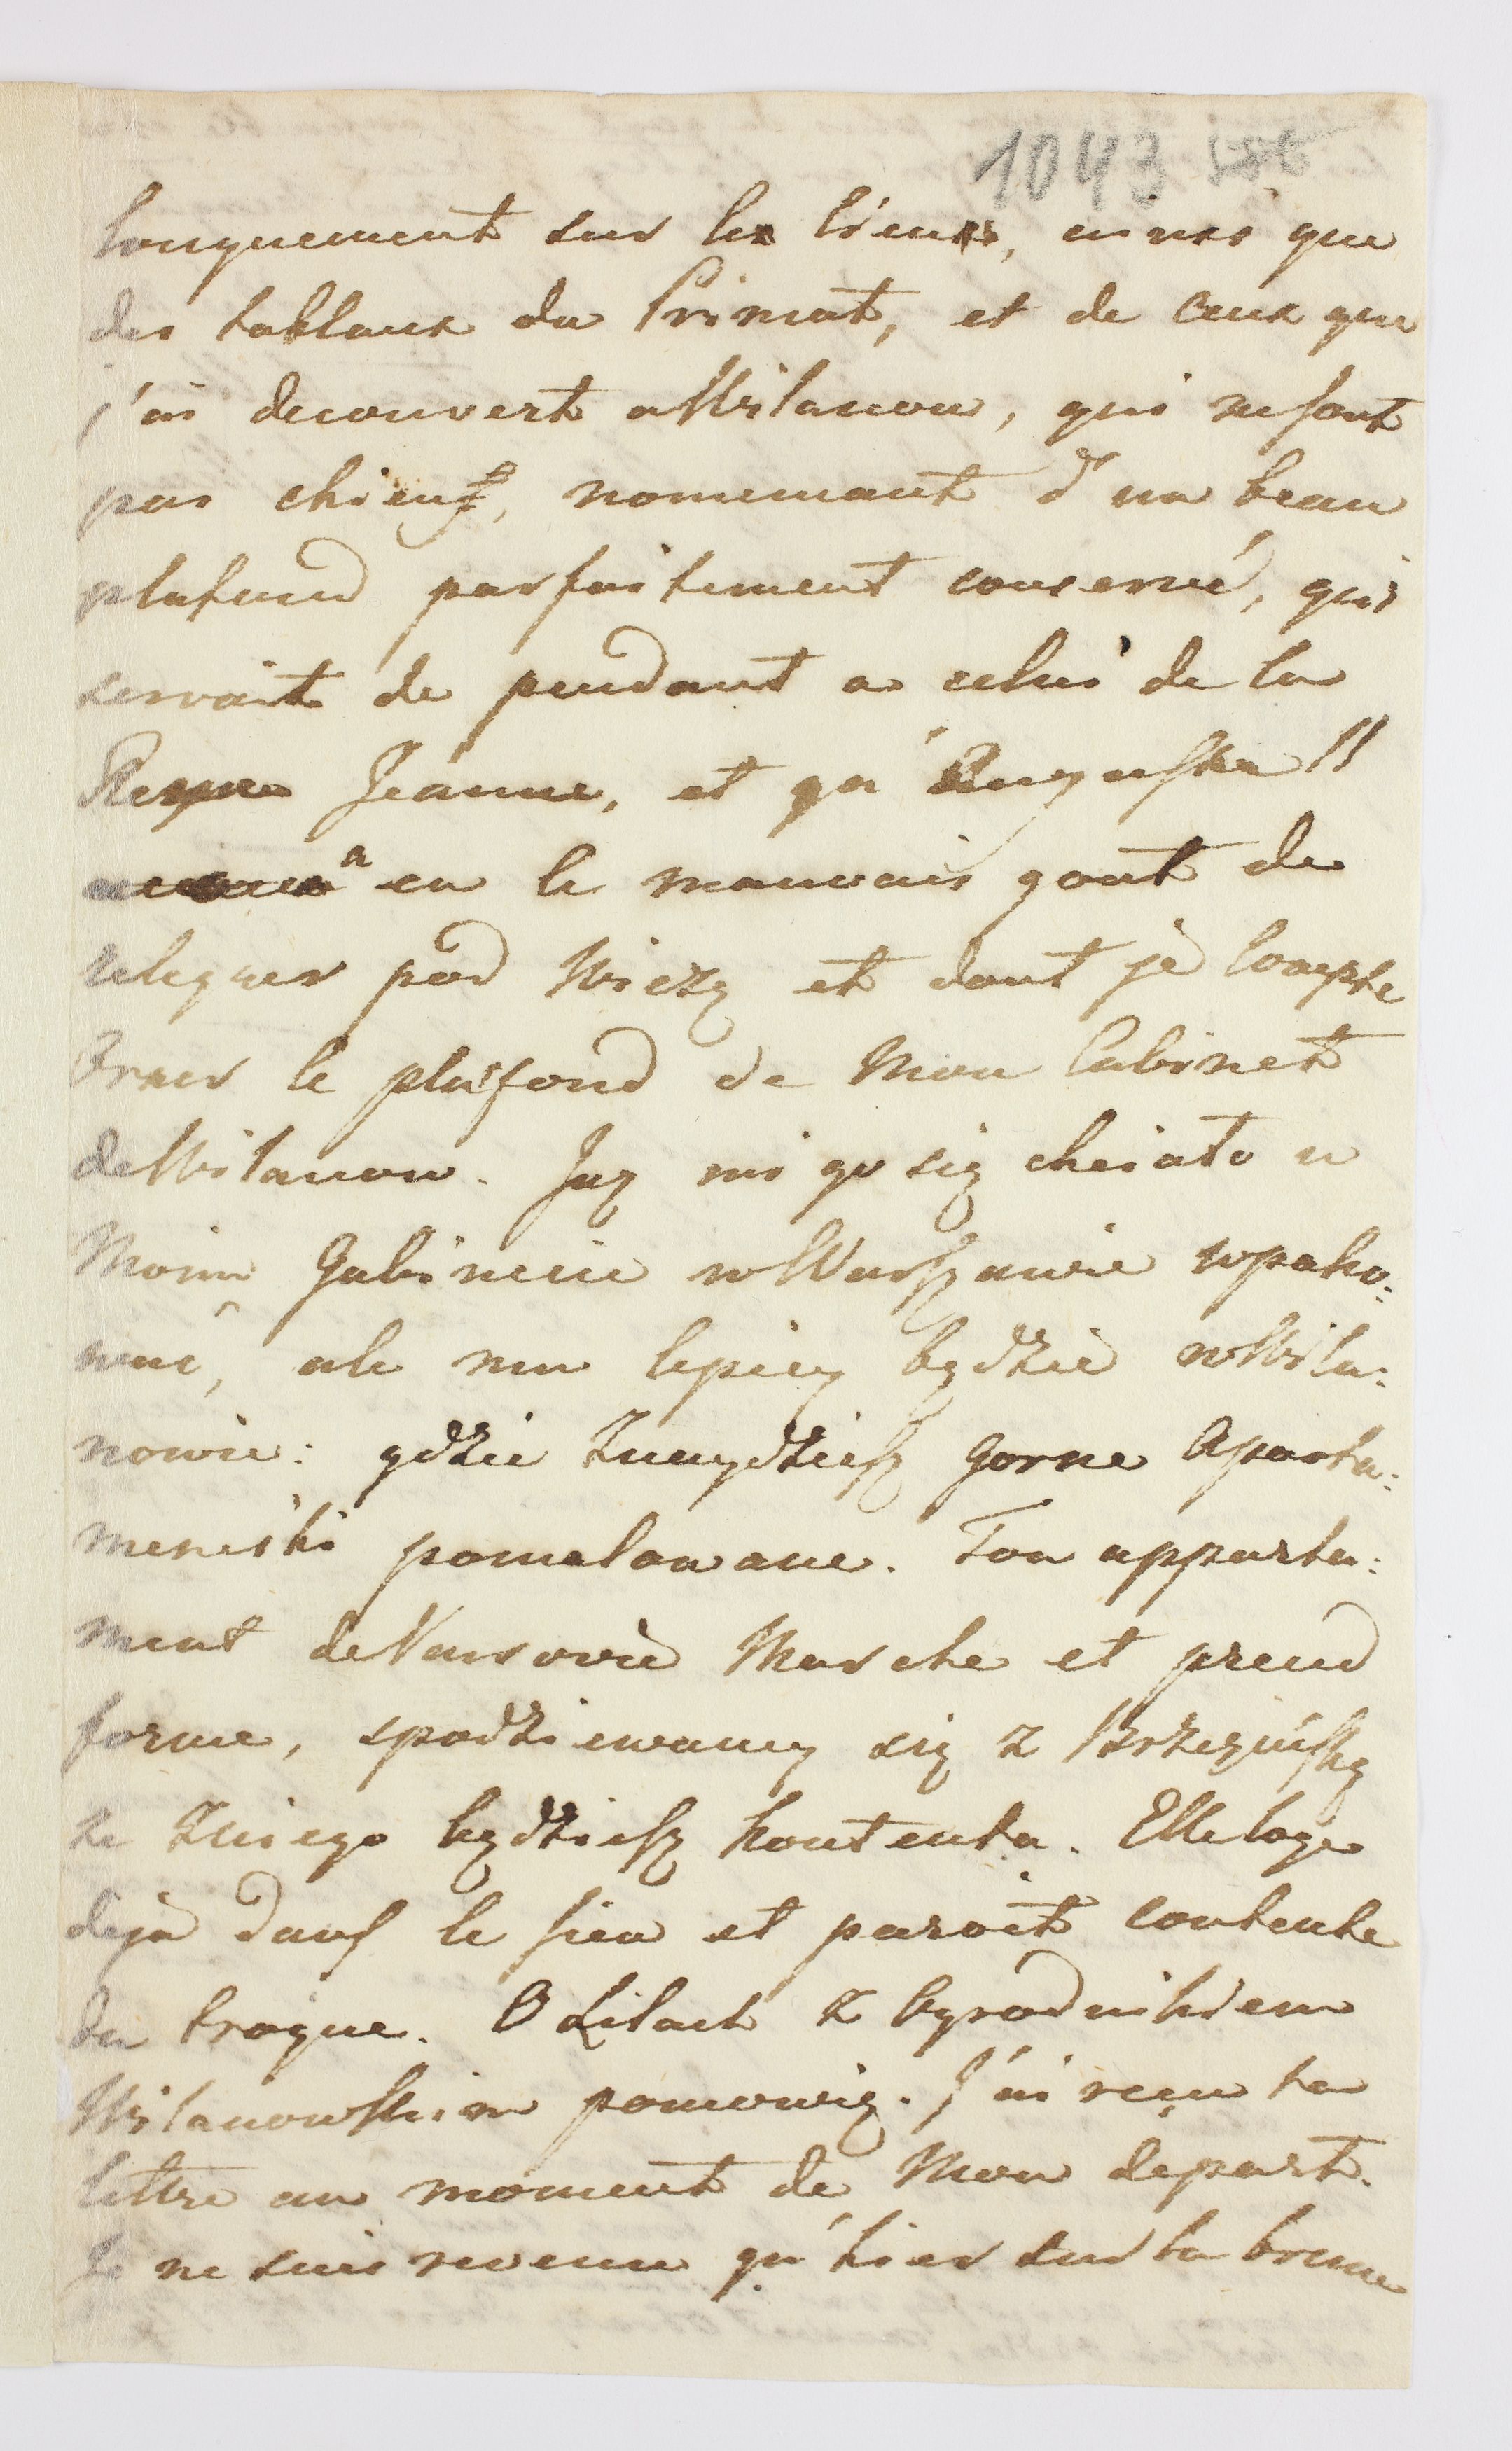 1043
longuement sur les tiens, ainsi que
des tableaux du Primat, et de ceux que
j'ai decouvert a Wilanow, qui ne sont
pas chienf, nomemant d'un beau
plafond parfaitement conservé, qui
servait de pendant a celui de la
Reyne Jeanne, et qu'Auguste II
a eu le mauvais gout de
releguer pod Wiezą et dont je compte
orner le plafond de Mon Cabinet
de Wilanow. Juz mi go się chciało w
Moim Gabinecie w Warszawie wpako:
wać, ale mu lepiey będzie w Wila:
nowie: gdzie Znaydziesz Gorne Aparta:
menciki pomalowane. Ton apparte:
ment de Varsovie Marche et prend
forme, spodziewamy się z Brzezińską
że Zniego będziesz kontenta. Elle loge
deja dans le sien et paroit contente
du troque. O Lilach z Ogrodnikiem
Wilanowskim pomowię. J'ai reçu ta
lettre au moment de Mon depart.
Je ne suis revenu qu'hier sur la brune